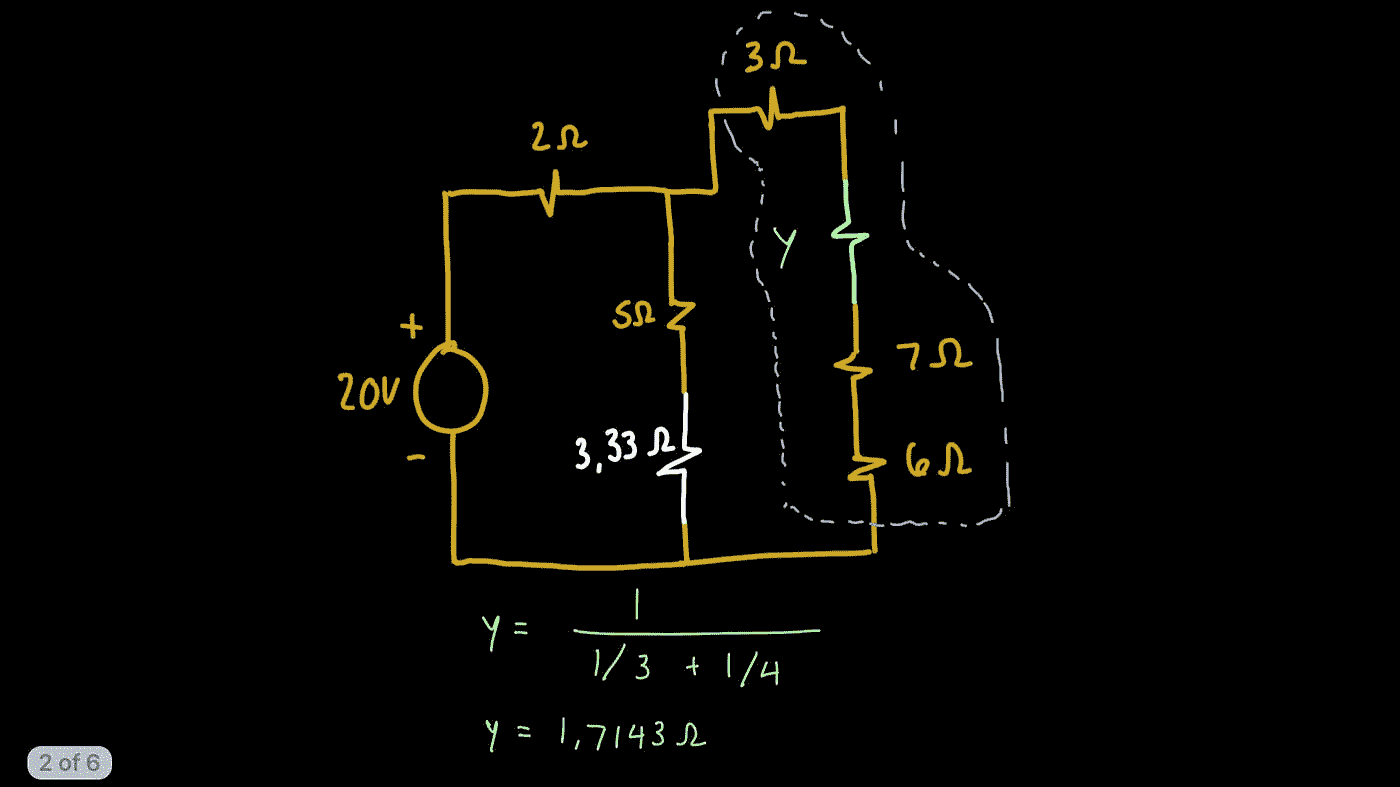 3Ω
2Ω
y
5Ω
+
7Ω
20V
3,33Ω
-
6Ω
y = 1
1/3 + 1/4
y = 1,7143Ω
2 of 6